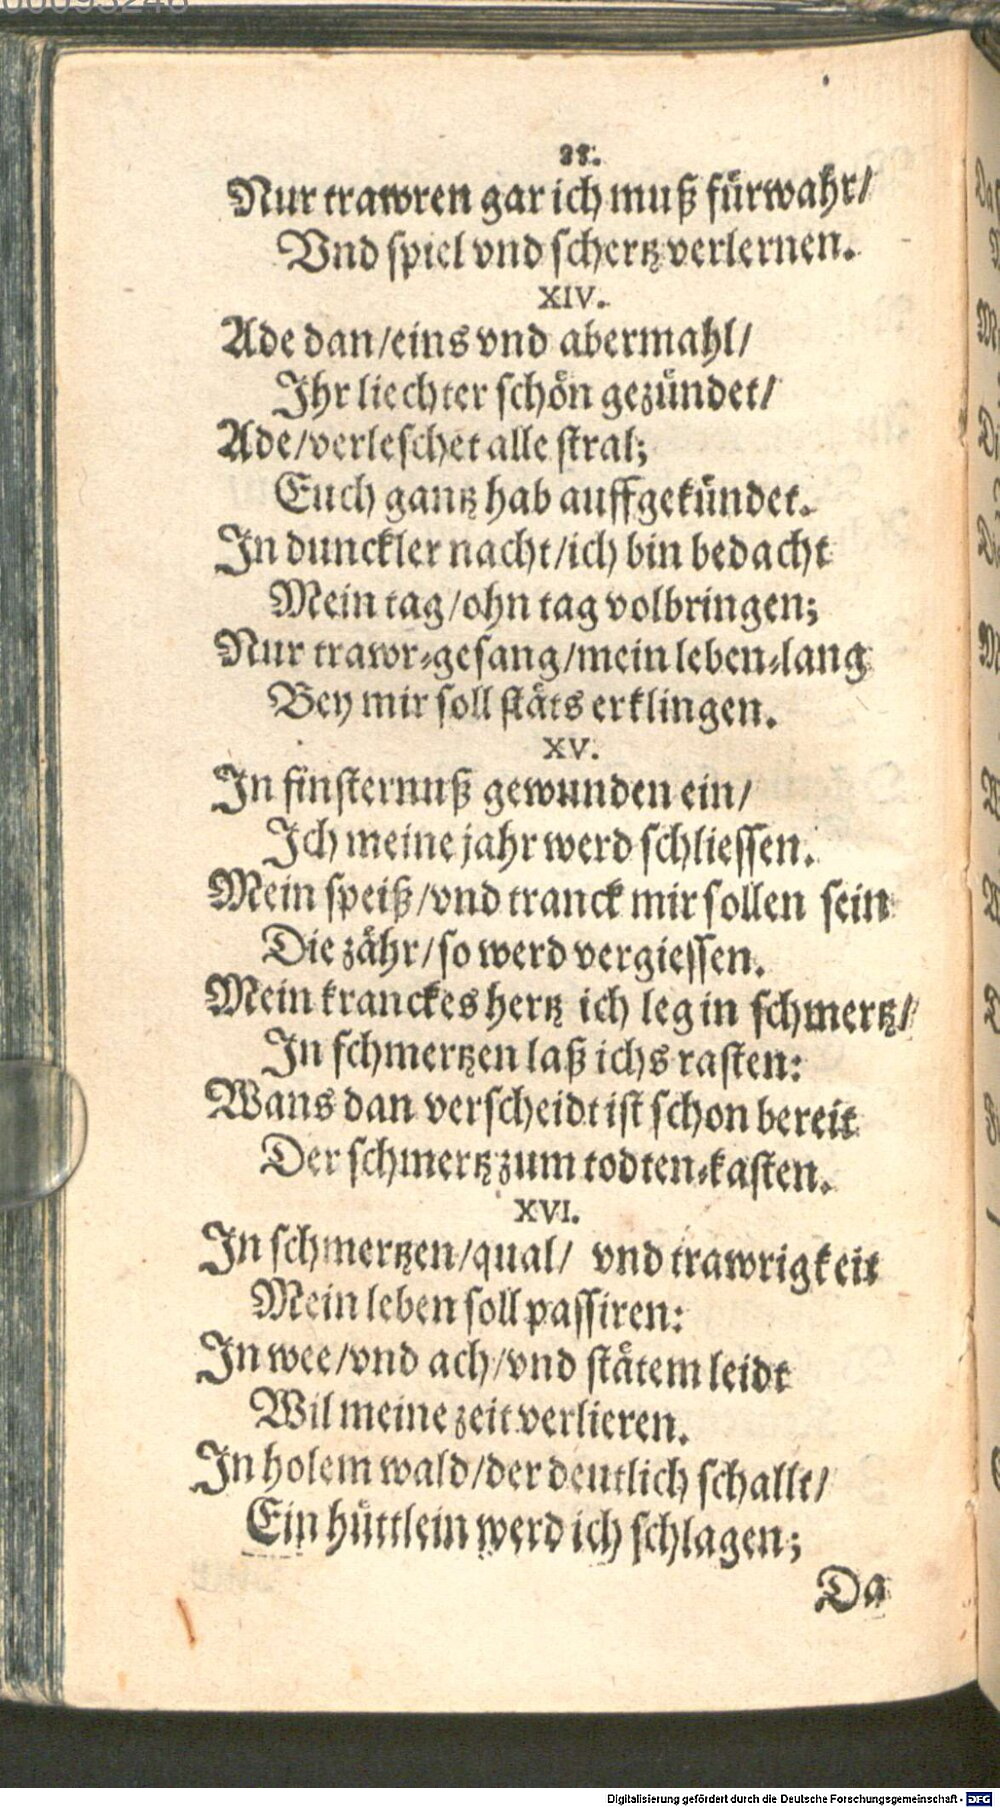 Nur trawren gar ich muß fürwahr/
Vnd spiel vnd schertz verlernen.
XIV.
Ade dan/eins vnd abermahl/
Ihr liechter schön gezündet/
Ade/verleschet alle stral;
Euch gantz hab auffgekündet.
In dunckler nacht/ich bin bedacht
Mein tag/ohn tag volbringen;
Nur trawr-gesang/mein leben-lang
Bey mir soll stäts erklingen.
XV.
In finsternuß gewunden ein/
Ich meine jahr werd schliessen.
Mein speiß/vnd tranck mir sollen sein
Die zähr/so werd vergiessen.
Mein kranckes hertz ich leg in schmertz/
In schmertzen laß ichs rasten:
Wans dan verscheidt ist schon bereit
Der schmertz zum todten-kasten.
XVI.
In schmertzen/qual/ vnd trawrigkeit
Mein leben soll passiren:
In wee/vnd ach/vnd stätem leidt
Wil meine zeit verlieren.
In holem wald/der deutlich schallt/
Ein hüttlein werd ich schlagen;
Da
Digitalisierung gefördert durch die Deutsche Forschungsgemeinschaft - DFG